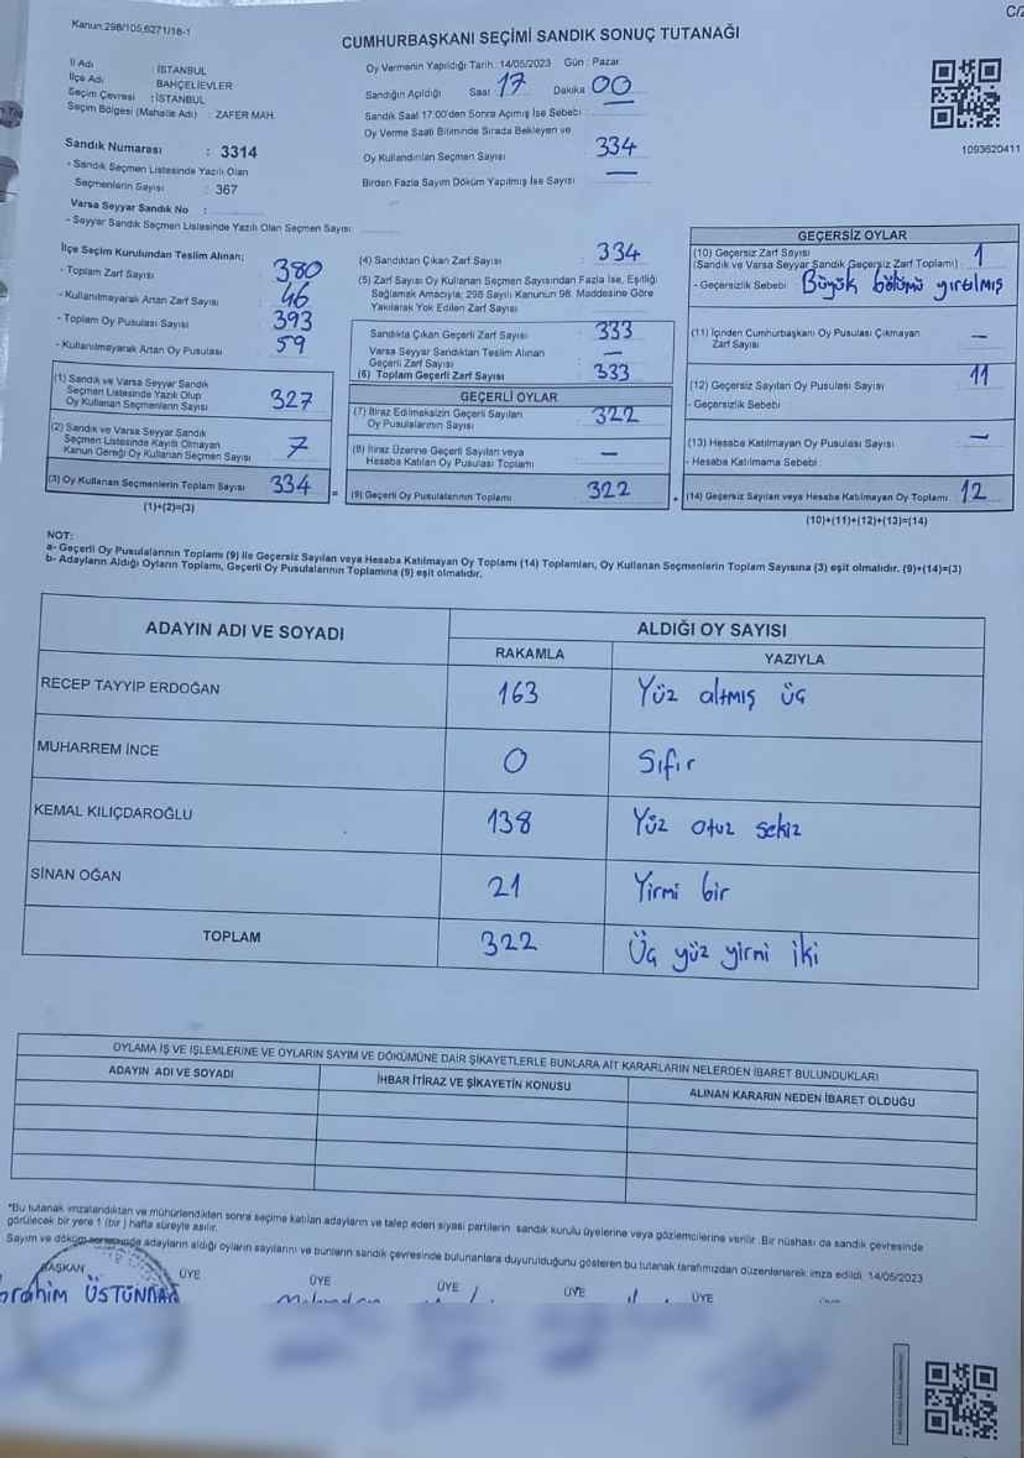 Kanun:298/105,6271/18-1
CUMHURBAŞKANI SEÇİMİ SANDIK SONUÇ TUTANAĞI
İl Adı : İSTANBUL
İlçe Adı BAHÇELİEVLER
Seçim Çevresi : İSTANBUL
Seçim Bölgesi (Mahalle Adı) : ZAFER MAH.
Sandık Numarası : 3314
- Sandık Seçmen Listesinde Yazılı Olan
Seçmenlerin Sayısı : 367
Varsa Seyyar Sandık No :
- Seyyar Sandık Seçmen Listesinde Yazılı Olan Seçmen Sayısı
Oy Vermenin Yapıldığı Tarih: 14/05/2023 Gün : Pazar
Sandığın Açıldığı Saat : 17 Dakika : 00
Sandık Saat 17:00'den Sonra Açılmış İse Sebebi : —
Oy Verme Saati Bitiminde Sırada Bekleyen ve
Oy Kullandırılan Seçmen Sayısı : 334
Birden Fazla Sayım Döküm Yapılmış İse Sayısı : —
1093620411
İlçe Seçim Kurulundan Teslim Alınan;
- Toplam Zarf Sayısı 380
- Kullanılmayarak Artan Zarf Sayısı 46
- Toplam Oy Pusulası Sayısı 393
- Kullanılmayarak Artan Oy Pusulası 59
(1) Sandık ve Varsa Seyyar Sandık
Seçmen Listesinde Yazılı Olup
Oy Kullanan Seçmenlerin Sayısı 327
(2) Sandık ve Varsa Seyyar Sandık
Seçmen Listesinde Kayıtlı Olmayan
Kanun Gereği Oy Kullanan Seçmen Sayısı 7
(3) Oy Kullanan Seçmenlerin Toplam Sayısı 334
(1)+(2)=(3)
(4) Sandıktan Çıkan Zarf Sayısı : 334
(5) Zarf Sayısı Oy Kullanan Seçmen Sayısından Fazla İse, Eşitliği
Sağlamak Amacıyla, 298 Sayılı Kanunun 98. Maddesine Göre
Yakılarak Yok Edilen Zarf Sayısı
Sandıkta Çıkan Geçerli Zarf Sayısı 333
Varsa Seyyar Sandıktan Teslim Alınan
Geçerli Zarf Sayısı —
(6) Toplam Geçerli Zarf Sayısı 333
GEÇERLİ OYLAR
(7) İtiraz Edilmeksizin Geçerli Sayılan
Oy Pusulalarının Sayısı 322
(8) İtiraz Üzerine Geçerli Sayılan veya
Hesaba Katılan Oy Pusulası Toplamı —
= (9) Geçerli Oy Pusulalarının Toplamı 322
GEÇERSİZ OYLAR
(10) Geçersiz Zarf Sayısı
(Sandık ve Varsa Seyyar Sandık Geçersiz Zarf Toplamı) : 1
- Geçersizlik Sebebi : Büyük bölümü yırtılmış
(11) İçinden Cumhurbaşkanı Oy Pusulası Çıkmayan
Zarf Sayısı —
(12) Geçersiz Sayılan Oy Pusulası Sayısı 11
- Geçersizlik Sebebi
(13) Hesaba Katılmayan Oy Pusulası Sayısı —
- Hesaba Katılmama Sebebi :
+ (14) Geçersiz Sayılan veya Hesaba Katılmayan Oy Toplamı 12
(10)+(11)+(12)+(13)=(14)
NOT:
a- Geçerli Oy Pusulalarının Toplamı (9) ile Geçersiz Sayılan veya Hesaba Katılmayan Oy Toplamı (14) Toplamları, Oy Kullanan Seçmenlerin Toplam Sayısına (3) eşit olmalıdır. (9)+(14)=(3)
b- Adayların Aldığı Oyların Toplamı, Geçerli Oy Pusulalarının Toplamına (9) eşit olmalıdır.
ADAYIN ADI VE SOYADI ALDIĞI OY SAYISI
RAKAMLA YAZIYLA
RECEP TAYYİP ERDOĞAN 163 Yüz altmış üç
MUHARREM İNCE 0 Sıfır
KEMAL KILIÇDAROĞLU 138 Yüz otuz sekiz
SİNAN OĞAN 21 Yirmi bir
TOPLAM 322 Üç yüz yirmi iki
OYLAMA İŞ VE İŞLEMLERİNE VE OYLARIN SAYIM VE DÖKÜMÜNE DAİR ŞİKAYETLERLE BUNLARA AİT KARARLARIN NELERDEN İBARET BULUNDUKLARI
ADAYIN ADI VE SOYADI İHBAR İTİRAZ VE ŞİKAYETİN KONUSU ALINAN KARARIN NEDEN İBARET OLDUĞU
*Bu tutanak imzalandıktan ve mühürlendikten sonra seçime katılan adayların ve talep eden siyasi partilerin sandık kurulu üyelerine veya gözlemcilerine verilir. Bir nüshası da sandık çevresinde
görülecek bir yere 1 (bir) hafta süreyle asılır.
Sayım ve döküm sonucunda adayların aldığı oyların sayılarını ve bunların sandık çevresinde bulunanlara duyurulduğunu gösteren bu tutanak tarafımızdan düzenlenerek imza edildi. 14/05/2023
BAŞKAN ÜYE ÜYE ÜYE ÜYE ÜYE